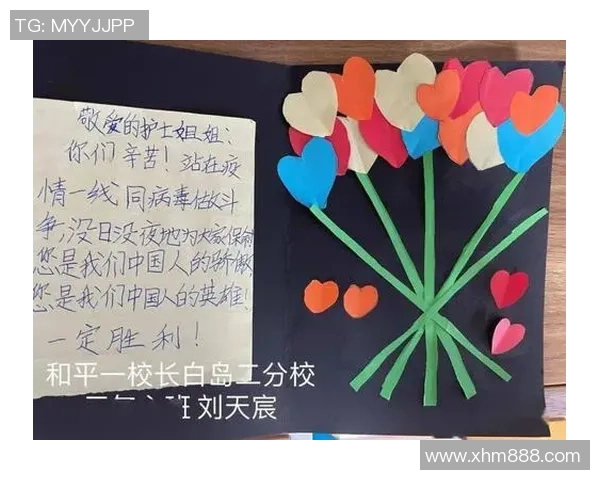 TG: MYYJJPP
敬爱的护士姐姐：
你们辛苦！站在疫
情一线同病毒做斗
争，没日没夜地为大家保命
您是我们中国人的骄傲，
您是我们中国人的英雄！
一定胜利！
和平一校长白岛二分校
班 刘天宸
www.xhm888.com